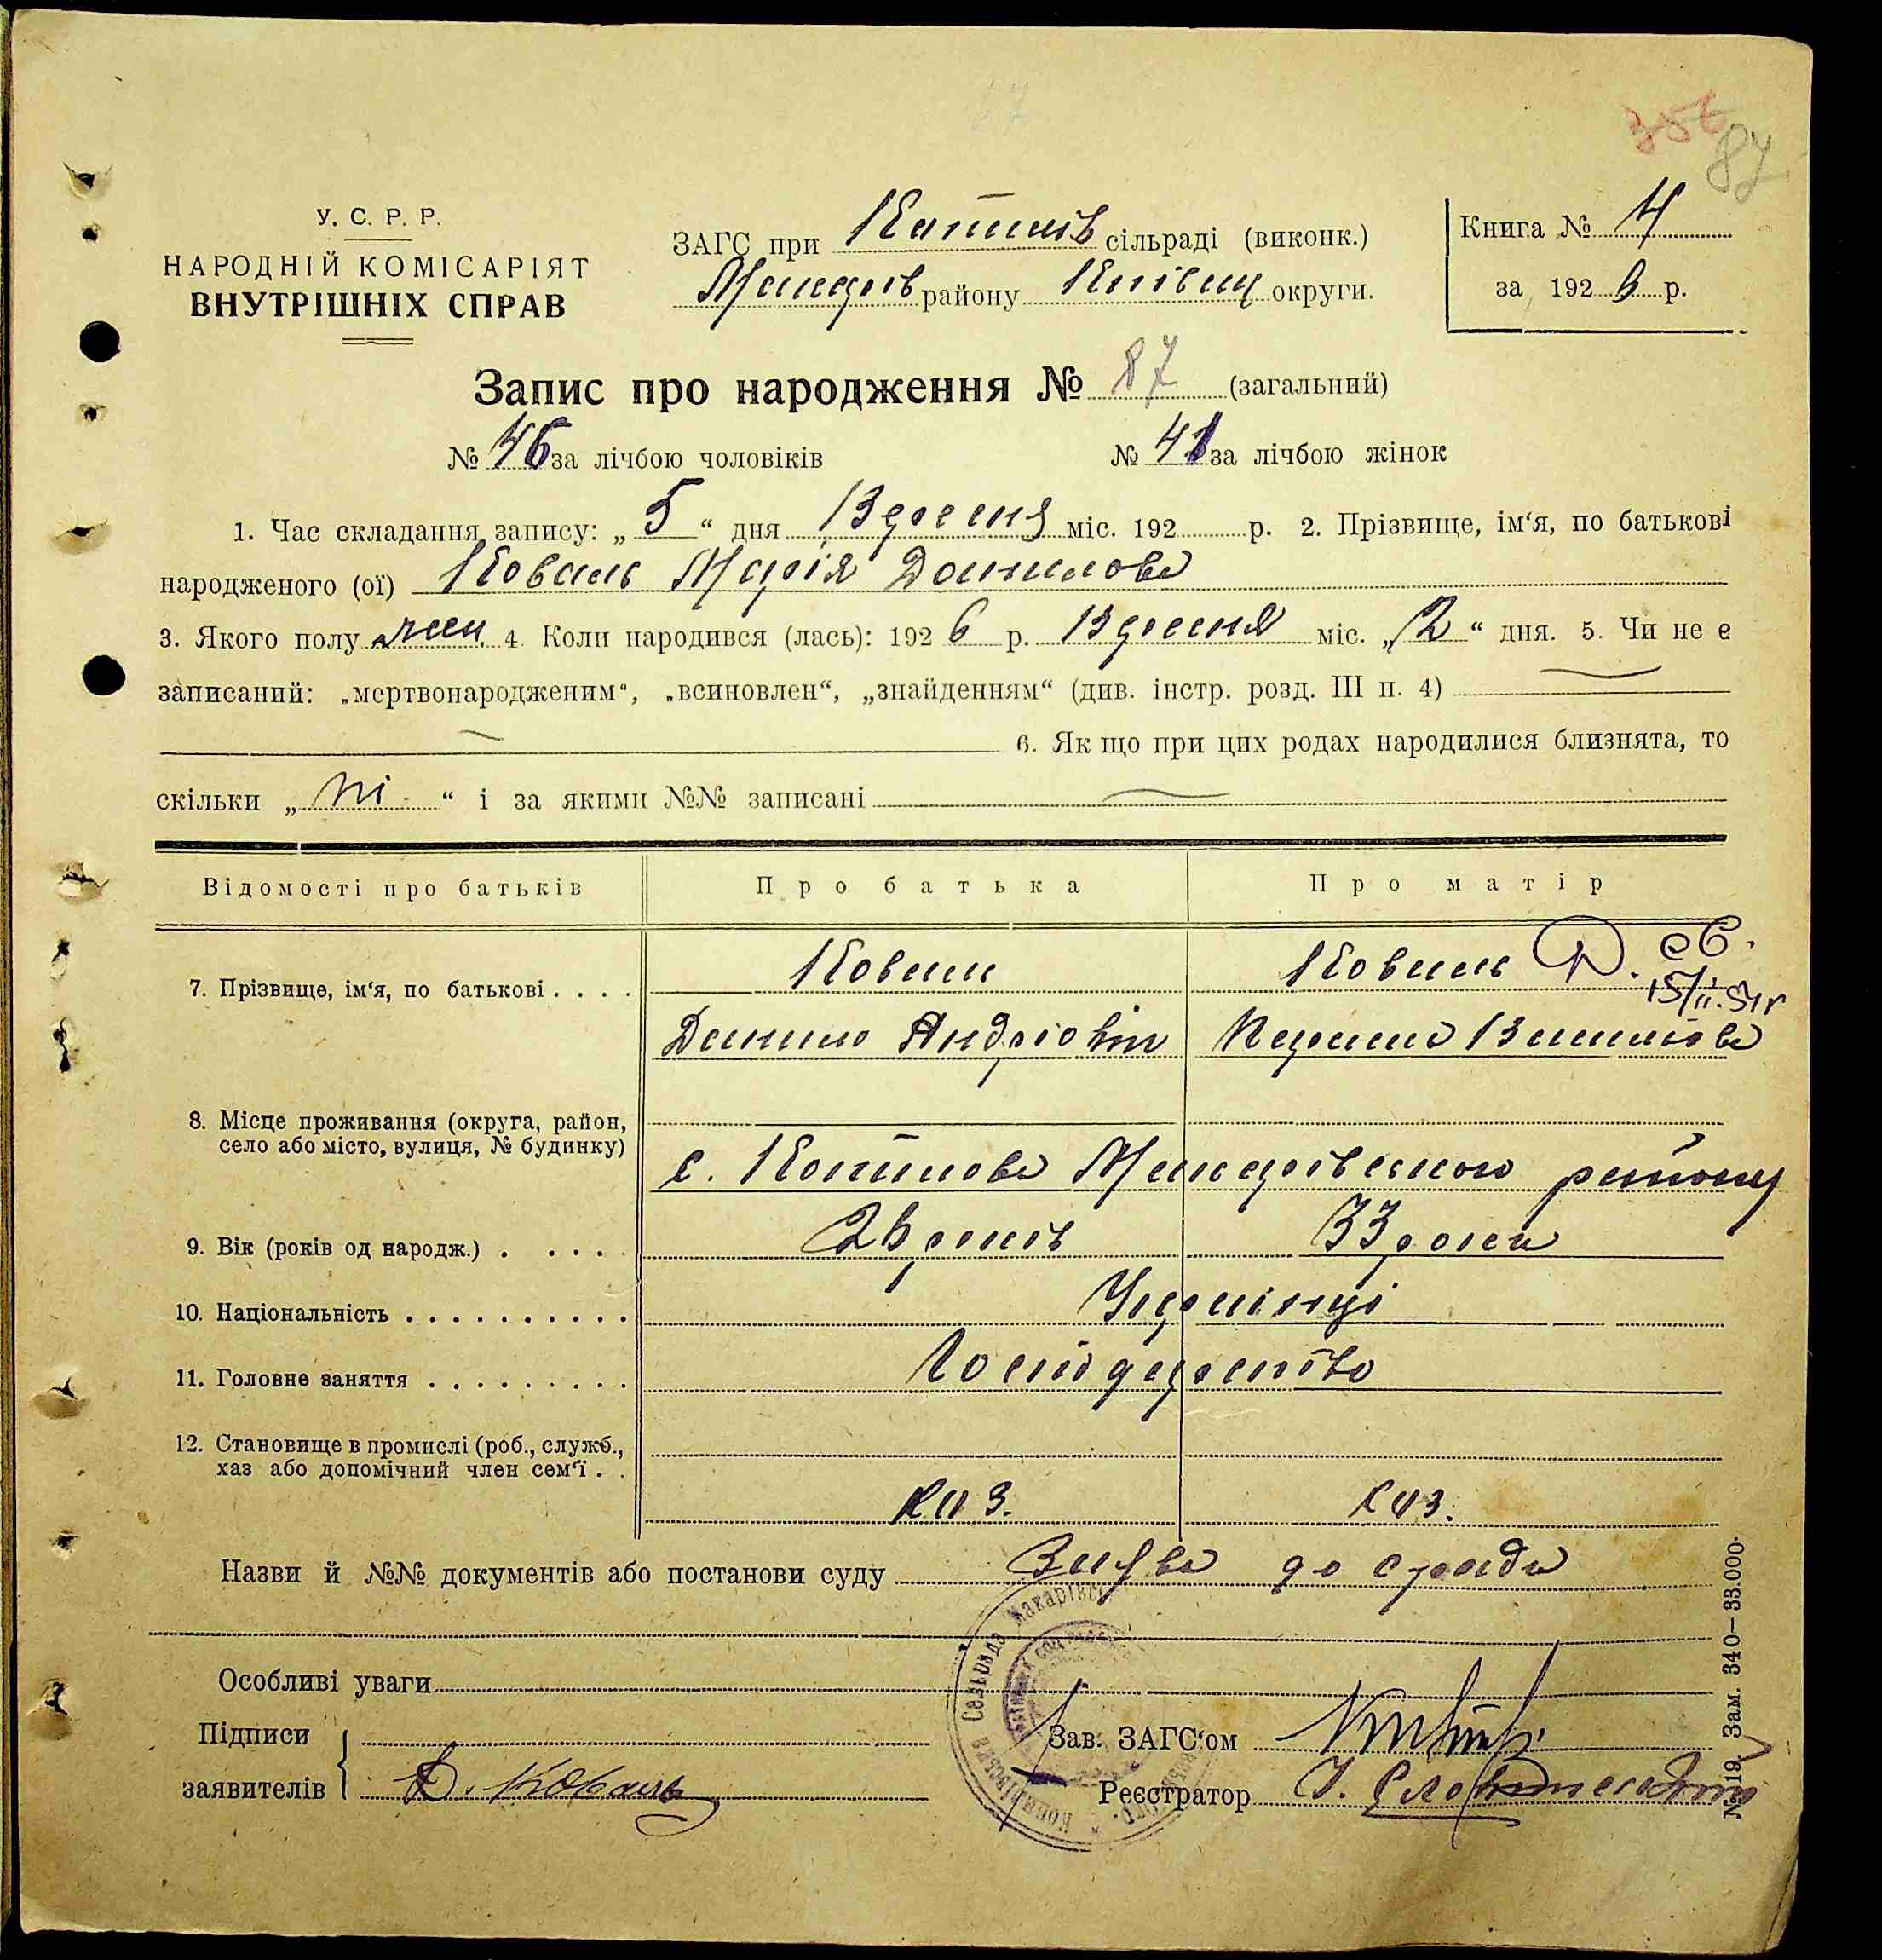 87
У. С. Р. Р.
НАРОДНІЙ КОМІСАРІЯТ
ВНУТРІШНІХ СПРАВ
ЗАГС при Копилів сільраді (виконк.)
Макарів району Київщ округи.
Книга № 4
за 1926 р.
Запис про народження № 87 (загальний)
№ 46 за лічбою чоловіків № 41 за лічбою жінок
1. Час складання запису: „ 5 “ дня Вересня міс. 192 р. 2. Прізвище, ім‘я, по батькові
народженого (ої) Коваль Марія Данилова
3. Якого полу жен. 4. Коли народився (лась): 192 6 р. Вересня міс. „ 2 “ дня. 5. Чи не є
записаний: „мертвонародженим“, „всиновлен“, „знайденням“ (див. інстр. розд. III п. 4)
6. Як що при цих родах народилися близнята, то
скільки „ ні “ і за якими №№ записані
Відомості про батьків Про батька Про матір
7. Прізвище, ім‘я, по батькові . . . . Коваль Коваль
Данило Андріовіч Василіва
8. Місце проживання (округа, район,
село або місто, вулиця, № будинку)
с. Копилова Макарівського району
9. Вік (років од народж.) . . . . . 26 років 33 роки
10. Національність . . . . . . . . . . Українці
11. Головне заняття . . . . . . . . . Господарство
12. Становище в промислі (роб., служб.,
хаз або допомічний член сем‘ї . .
хаз. хаз.
Назви й №№ документів або постанови суду Заява до сради
Особливі уваги
Підписи
заявителів Д. Коваль
Зав. ЗАГС‘ом
Реєстратор
№ 19 Зам. 340—33.000.